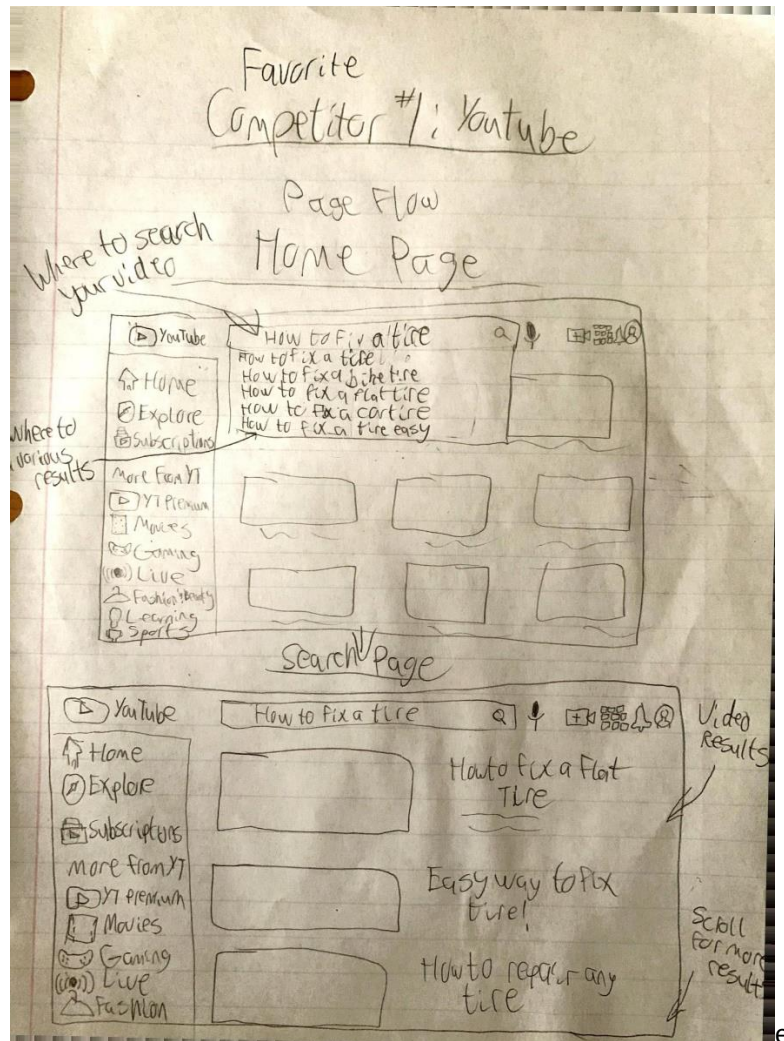 Favorite
Competitor #1: Youtube
Page Flow
Home Page
Where to search
your video
YouTube
How to Fix a tire
How to fix a tire
How to fix a bike tire
How to fix a flat tire
How to fix a car tire
How to fix a tire easy
Home
Explore
Subscriptions
Where to
various
results
More From YT
YT Premium
Movies
Gaming
Live
Fashion & Beauty
Learning
Sports
Search Page
YouTube
How to fix a tire
Home
Explore
Subscriptions
More from YT
YT Premium
Movies
Gaming
Live
Fashion
How to fix a flat
Tire
Easy way to fix
tire!
How to repair any
tire
Video
Results
Scroll
for more
result
e